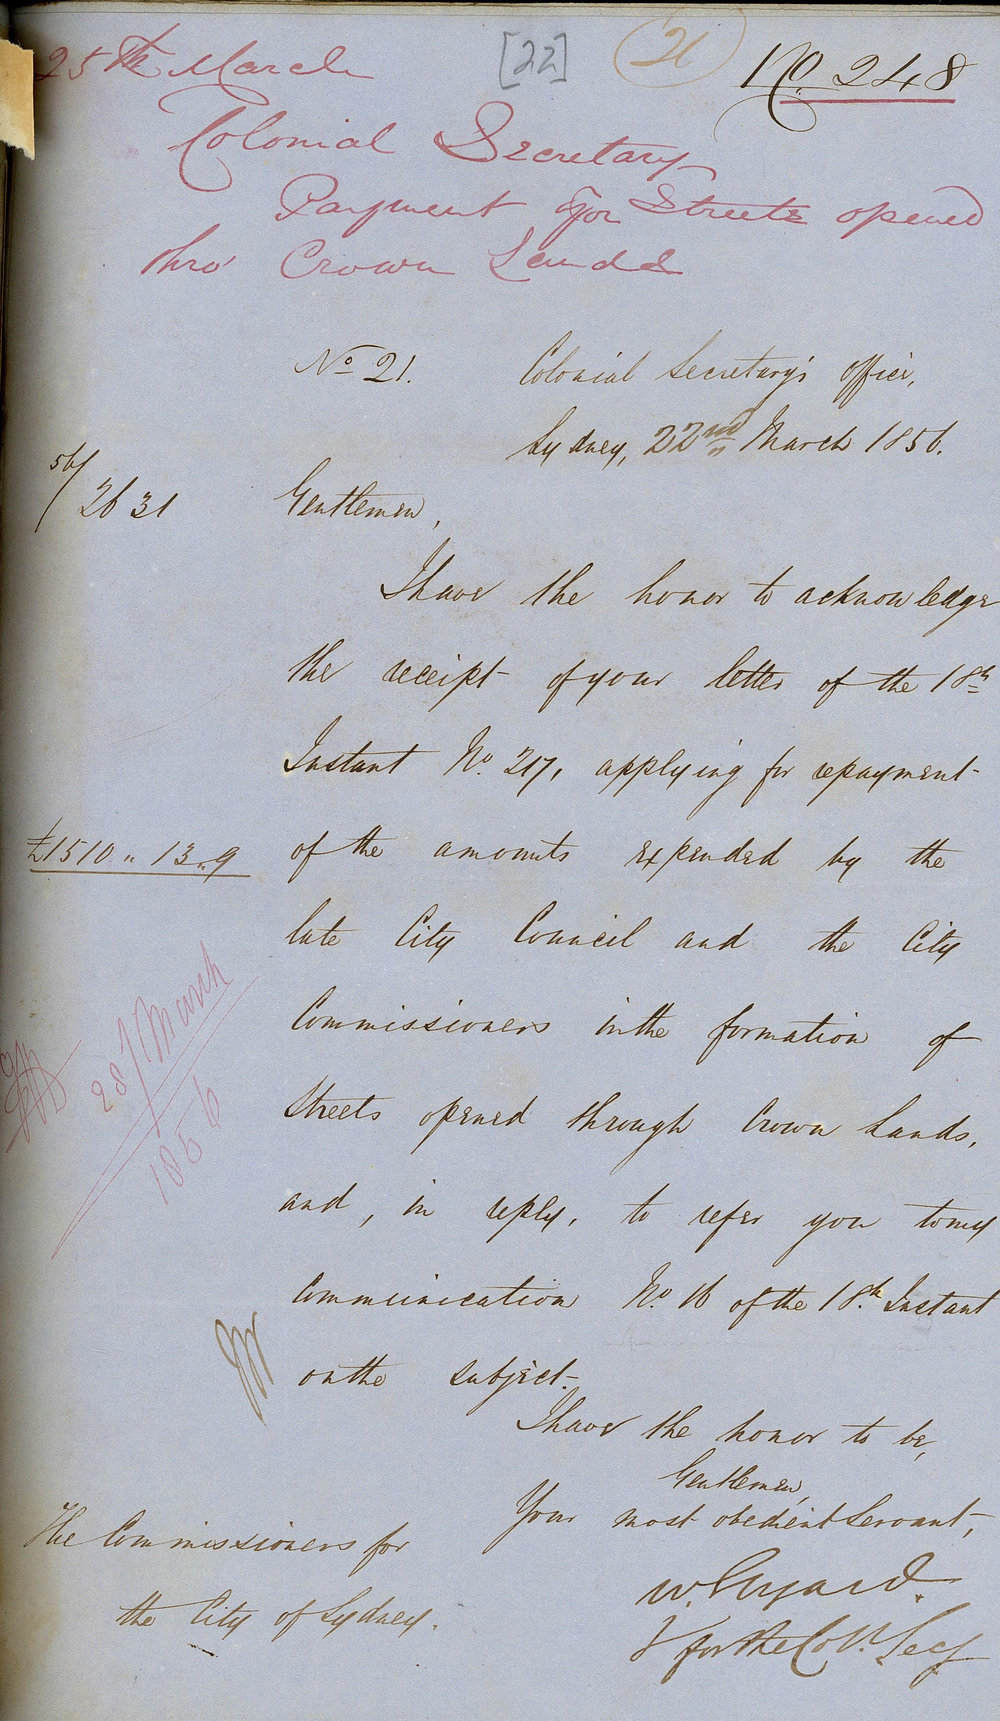 25th March
[22]
21
No. 248
Colonial Secretary
Payment for Streets opened
thro' Crown Lands
No 21.
Colonial Secretary's Office,
Sydney, 22nd March 1856.
56/2631
Gentlemen,
I have the honor to acknowledge
the receipt of your letter of the 18th
Instant No. 217, applying for repayment
£1510 " 13 " 9
of the amounts expended by the
late City Council and the City
Commissioners in the formation of
Streets opened through Crown Lands,
28/March
1856
and, in reply, to refer you to my
Communication No. 16 of the 18th Instant
on the subject.
I have the honor to be,
Gentlemen,
Your most obedient Servant,
W. Elyard.
for the Col. Secy
The Commissioners for
the City of Sydney.